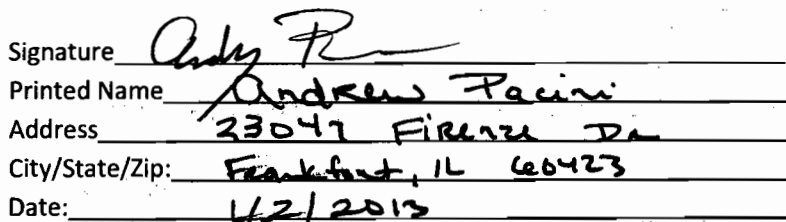 Signature Andy P
Printed Name Andrew Pacini
Address 23047 Firenze Dr
City/State/Zip: Frankfort, IL 60423
Date: 1/2/2013